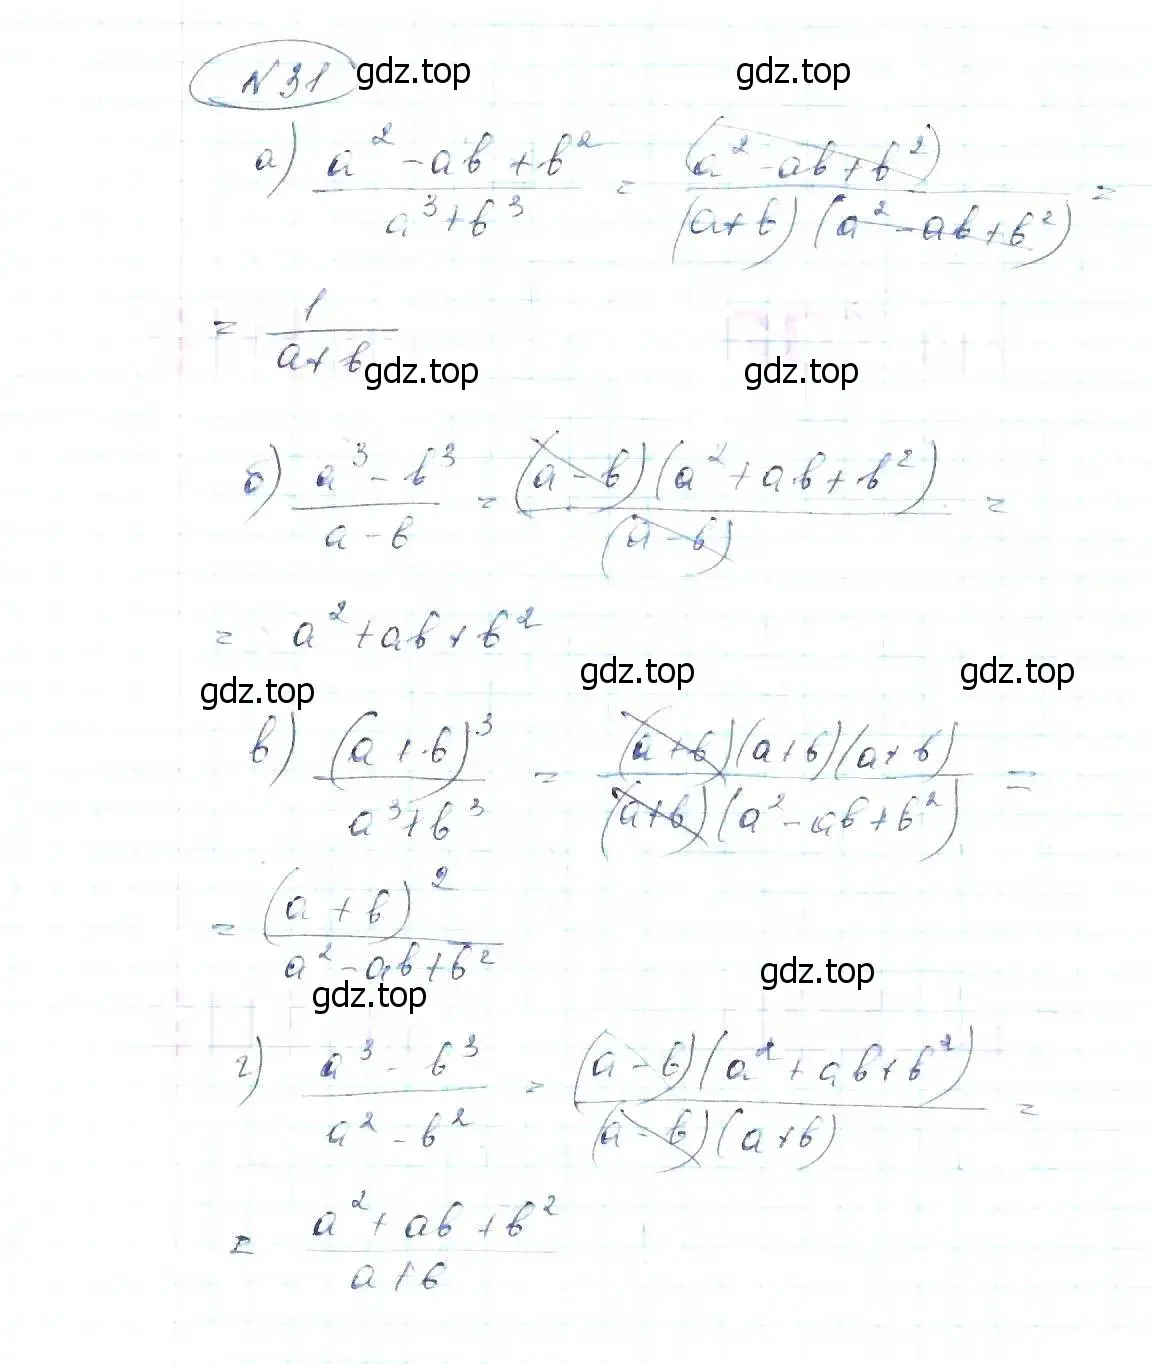 №31 gdz.top gdz.top
а) (a² - ab + b²)/(a³ + b³) = (a² - ab + b²)/((a+b)(a² - ab + b²)) =
= 1/(a+b)
gdz.top gdz.top
б) (a³ - b³)/(a - b) = ((a - b)(a² + ab + b²))/((a - b)) =
= a² + ab + b²
gdz.top gdz.top gdz.top
в) (a + b)³/(a³ + b³) = ((a + b)(a + b)(a + b))/((a + b)(a² - ab + b²)) =
= (a + b)²/(a² - ab + b²)
gdz.top gdz.top
г) (a³ - b³)/(a² - b²) = ((a - b)(a² + ab + b²))/((a - b)(a + b)) =
= (a² + ab + b²)/(a + b)